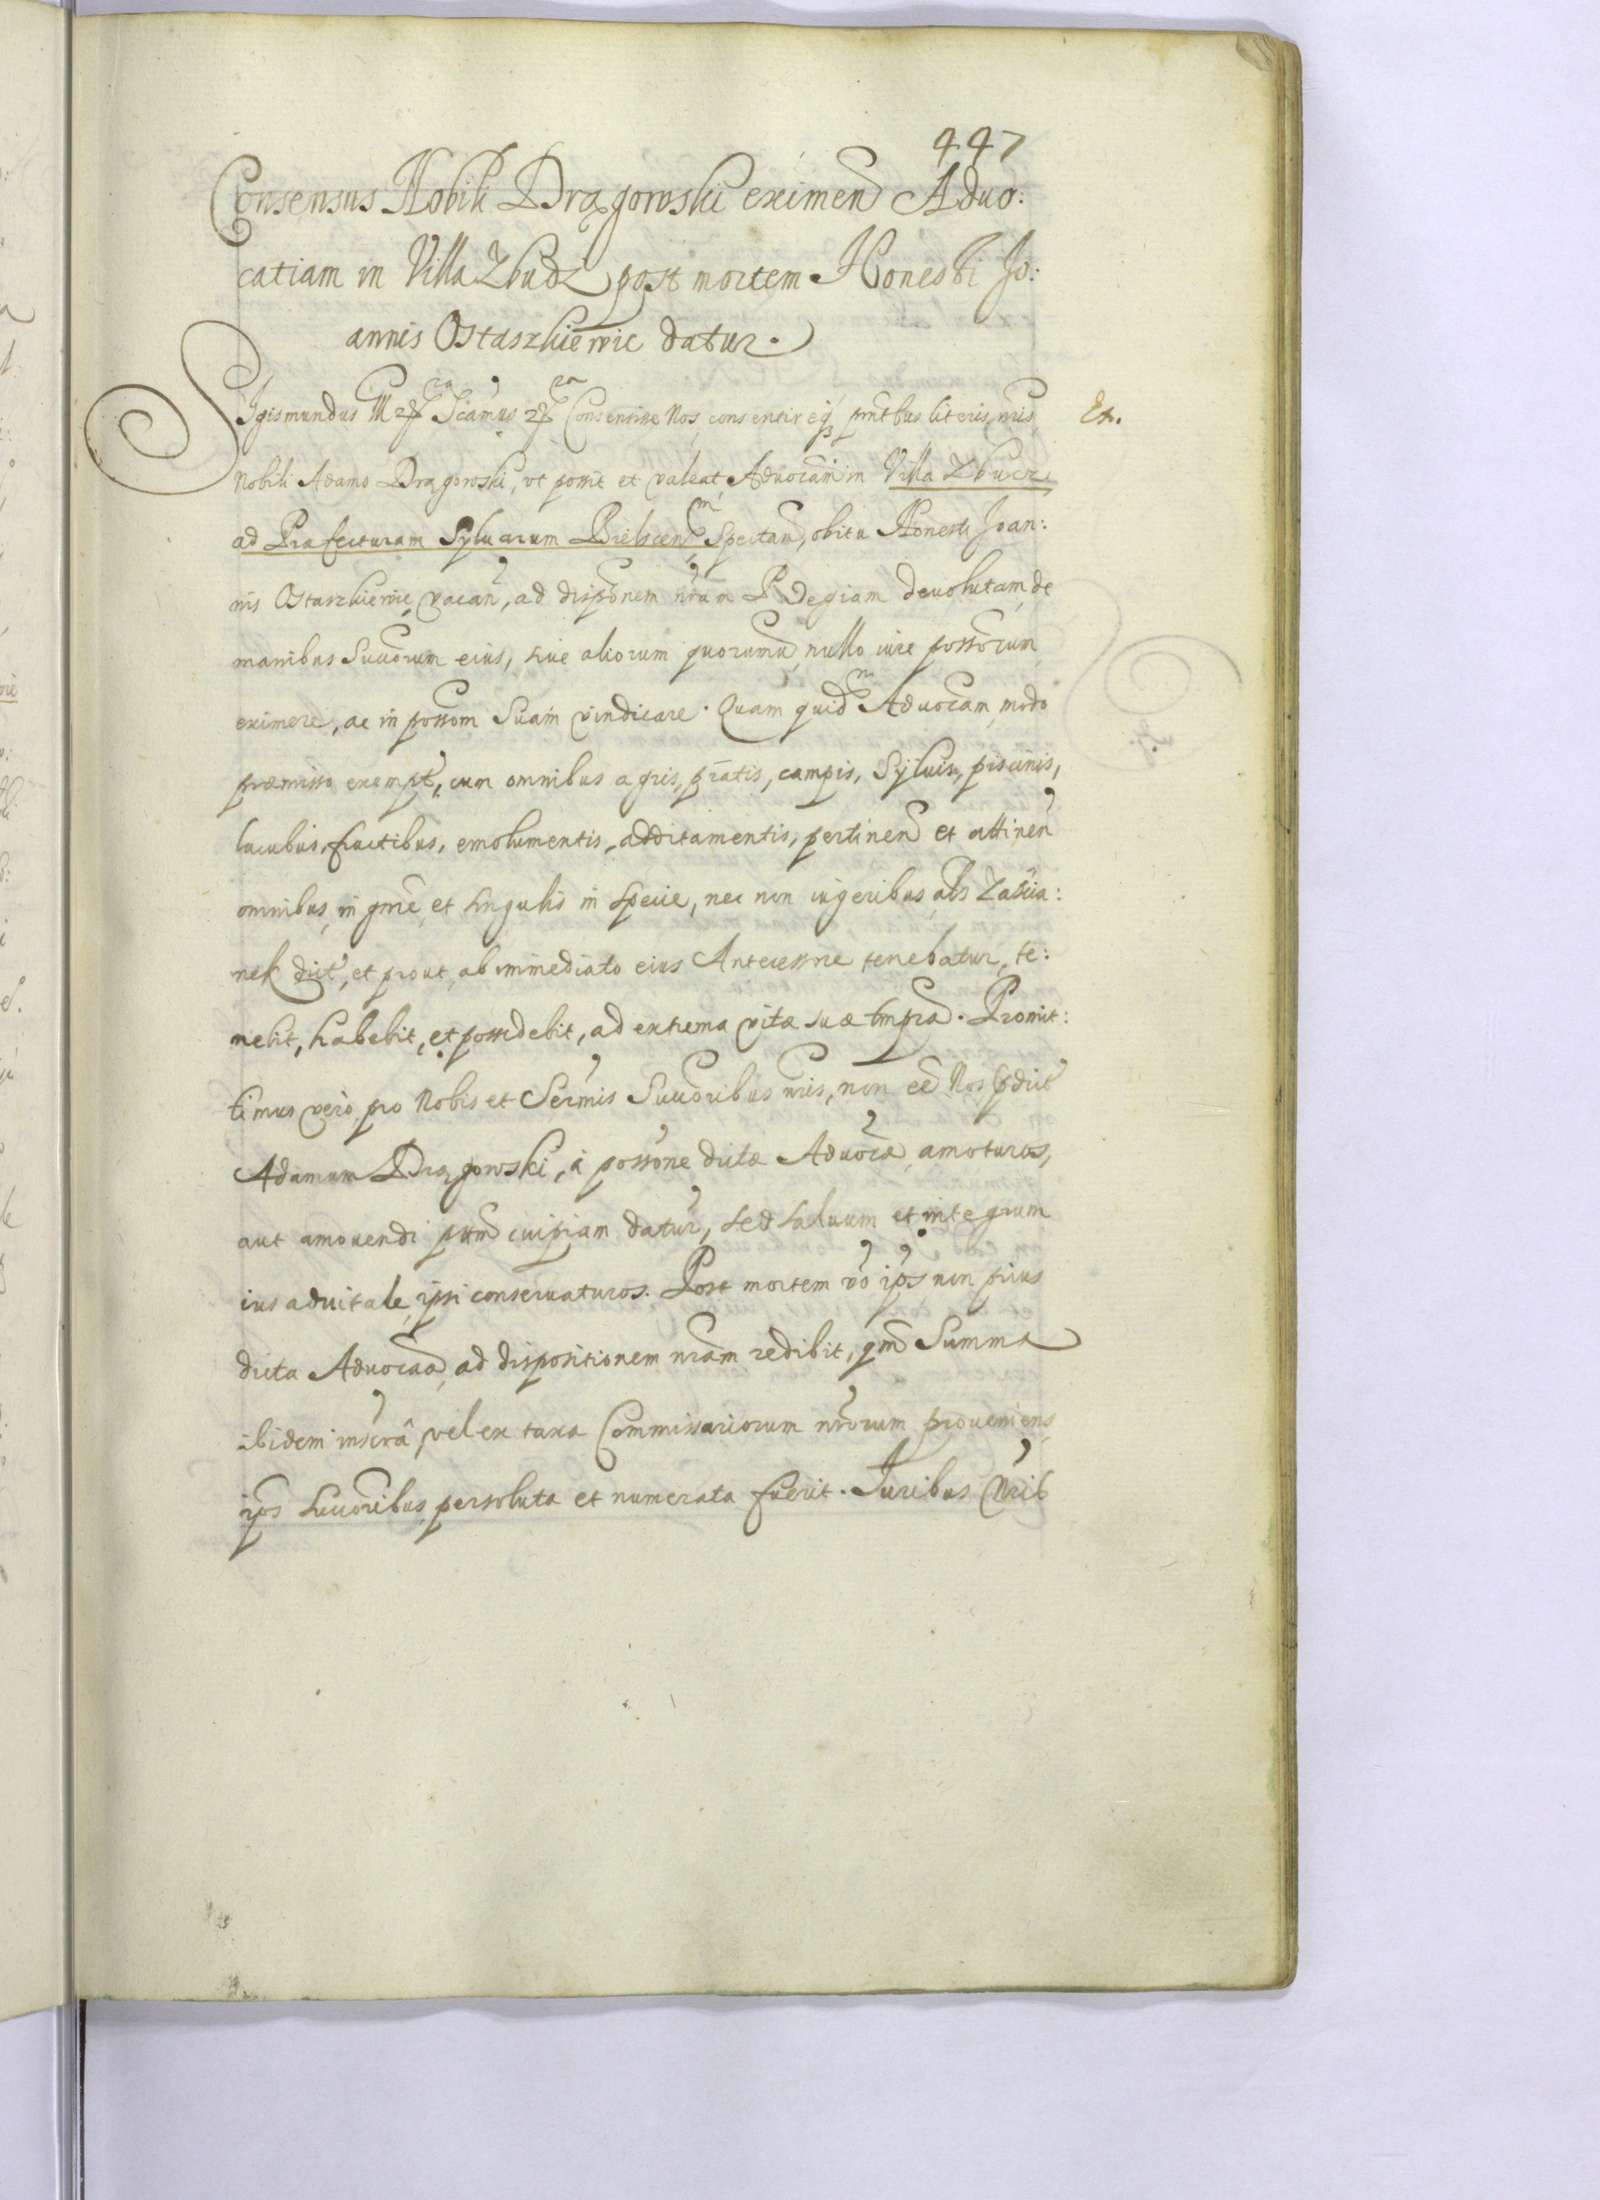 447
Consensus Nobili Drągowski eximend Aduo:
catiam in Villa Zbucz post mortem Honesti Jo:
annis Ostaszkiewic datur.
Sigismundus III etc. Scamus etc. Consentire Nos, consentireq3 pntbus literis nris
Nobili Adamo Drągowski, vt possit et valeat Aduocam in Villa Zbucz,
ad Præfecturam Syluarum Bielscen Spectan, obitu Honesti Joan:
nis Ostaszkiewic vacan, ad disponem nram Regiam deuolutam, de
manibus Succorum eius, siue aliorum quorumu, nullo iure possorum
eximere, ac in possom Suam vindicare. Quam quid Aduocam, modo
præmisso exempt, cum omnibus agris, pratis, campis, Syluis, piscinis,
lacubus, fructibus, emolumentis, additamentis, pertinen et attinen
omnibus, in gnre, et singulis in specie, nec non iugeribus, als Zascia:
nek dict, et prout, ab immediato eius Antecessore tenebatur, te:
nebit, habebit, et possidebit, ad extrema vitæ suæ tmpra. Promit:
timus vero, pro Nobis et Sermis Succoribus nris, non ee Nos pdict
Adamum Drągowski, à possone dictæ Aduocæ, amoturos,
aut amouendi ptm cuipiam datur, sed saluum et integrum
ius aduitale, ipsi conseruaturos. Post mortem vo ips non prius
dicta Aduocaa, ad dispositionem nram redibit, qm Summa
ibidem inscra, vel ex taxa Commissariorum nrorum proueniens,
ips Succoribus, persoluta et numerata fuerit. Juribus Nris
Ex.